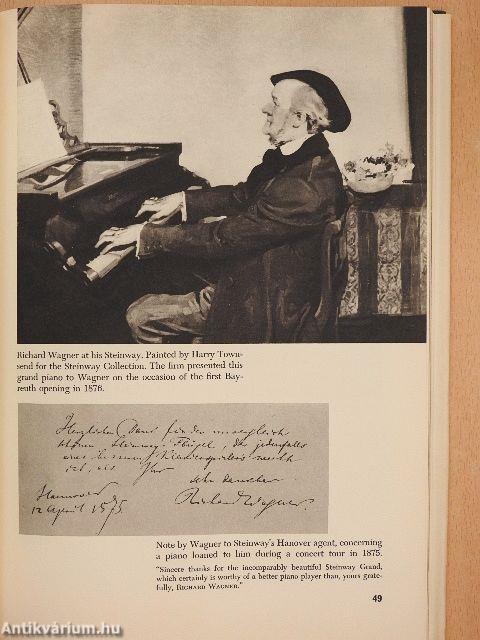 Richard Wagner at his Steinway. Painted by Harry Town-
send for the Steinway Collection. The firm presented this
grand piano to Wagner on the occasion of the first Bay-
reuth opening in 1876.
Herzlichen Dank für den unvergleich-
schönen Steinway-Flügel, der jedenfalls
eines besseren Klavierspielers werth
ist, als Ihr
sehr dankbarer
Hannover
12 April 1875.
Richard Wagner.
Note by Wagner to Steinway's Hanover agent, concerning
a piano loaned to him during a concert tour in 1875.
"Sincere thanks for the incomparably beautiful Steinway Grand,
which certainly is worthy of a better piano player than, yours grate-
fully, RICHARD WAGNER."
49
Antikvárium.hu